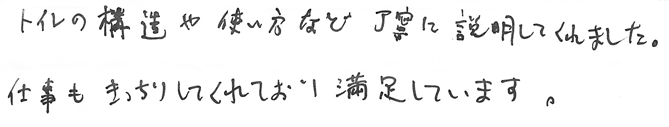 トイレの構造や使い方など丁寧に説明してくれました。
仕事もきっちりしてくれており満足しています。